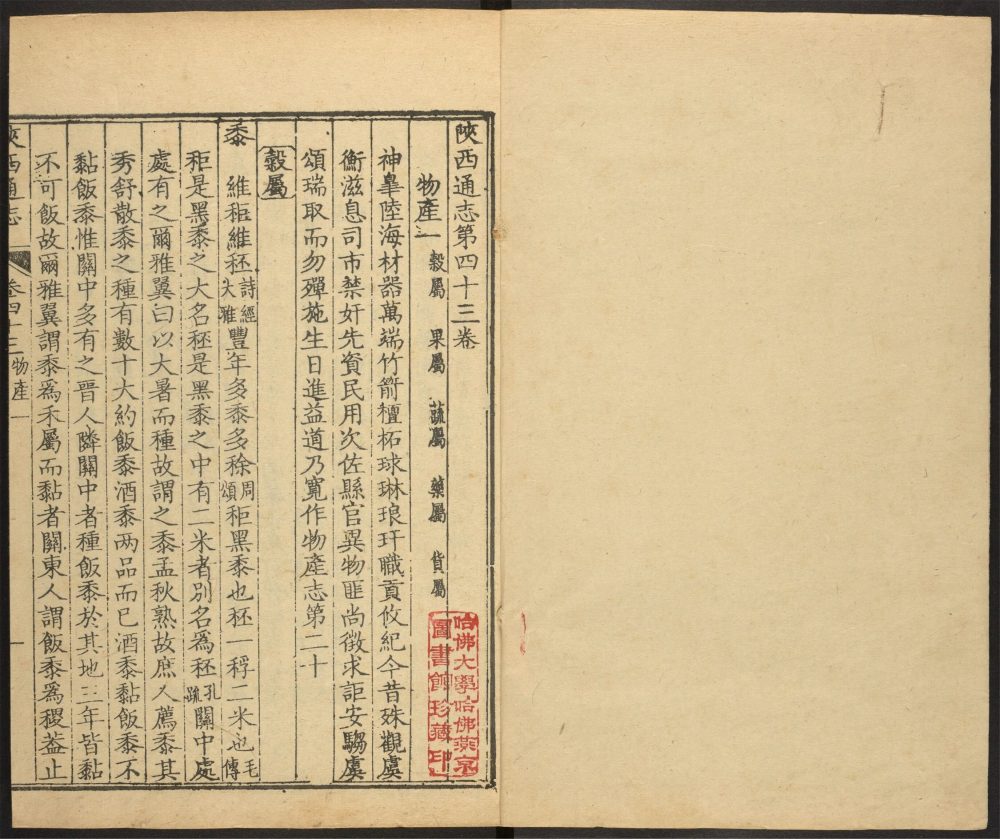 陝西通志第四十三卷
物產一 穀屬 果屬 蔬屬 藥屬 貨屬
神臯陸海材器萬端竹箭檀柘球琳琅玕職貢攸紀今昔殊觀虞
衡滋息司市禁奸先資民用次佐縣官異物匪尚徵求詎安騶虞
頌瑞取而勿殫施生日進益道乃寬作物產志第二十
穀屬
黍 維秬維秠詩經大雅豐年多黍多稌周頌秬黑黍也秠一稃二米也毛傳
秬是黑黍之大名秠是黑黍之中有二米者別名為秠孔疏關中處
處有之爾雅翼曰以大暑而種故謂之黍孟秋熟故庶人薦黍其
秀舒散黍之種有數十大約飯黍酒黍两品而已酒黍黏飯黍不
黏飯黍惟關中多有之晉人隣關中者種飯黍於其地三年皆黏
不可飯故爾雅翼謂黍為禾屬而黏者關東人謂飯黍為稷葢止
陝西通志 卷四十三 物產一 一
哈佛大學哈佛燕京
圖書館珍藏印